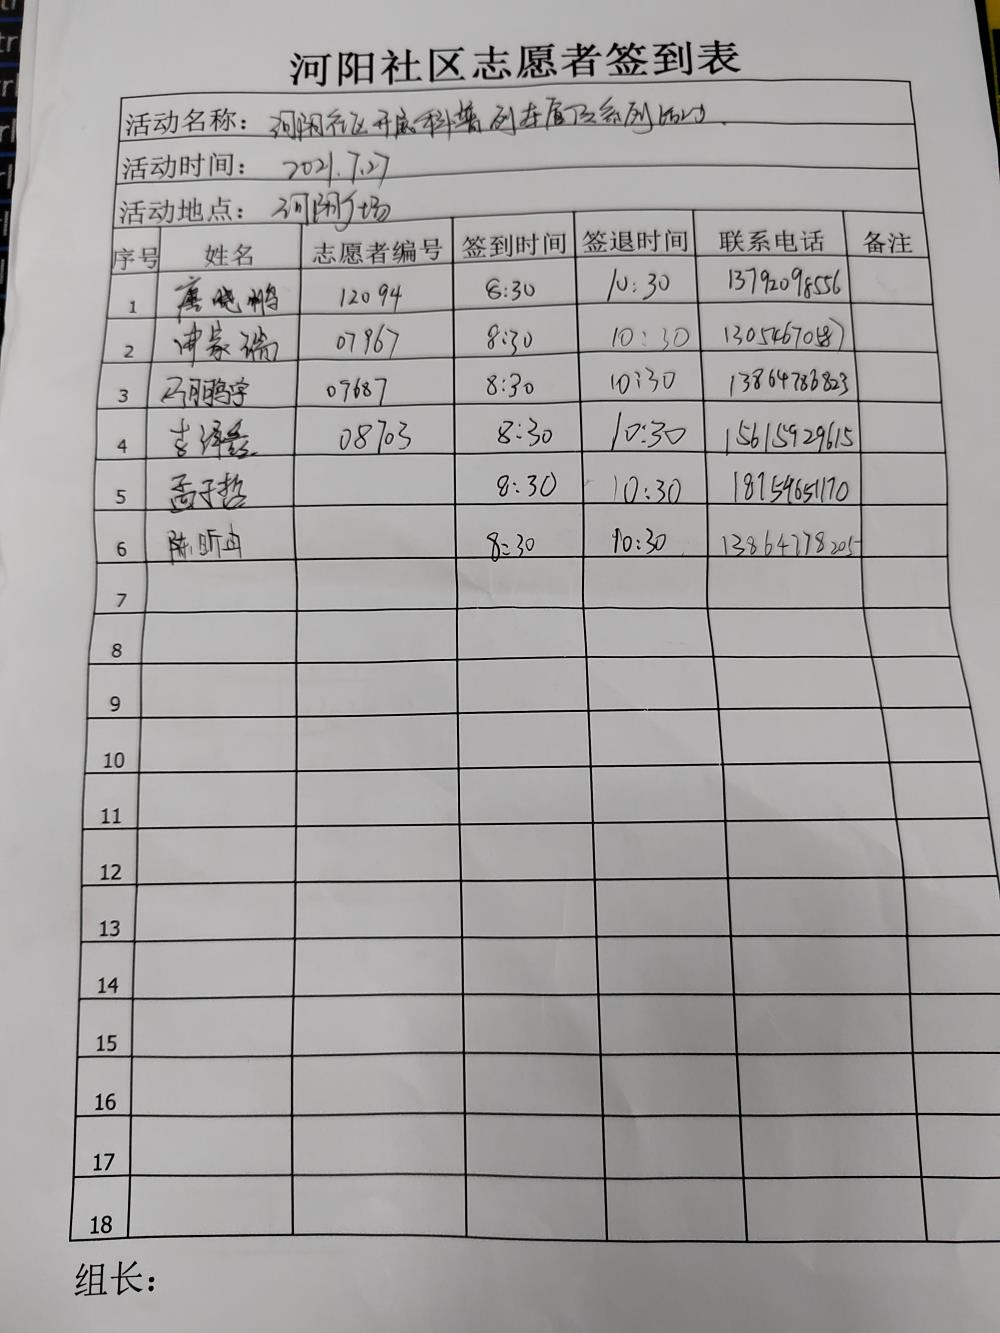 河阳社区志愿者签到表
活动名称：河阳社区开展科普列车 系列活动.
活动时间：2021.7.27
活动地点：河阳广场
序号 姓名 志愿者编号 签到时间 签退时间 联系电话 备注
1 唐晓鹏 12094 8:30 10:30 13792098556
2 家瑞 07967 8:30 10:30
3 鹏宇 07687 8:30 10:30 13864786823
4 李泽鑫 08703 8:30 10:30 15615929615
5 孟子哲 8:30 10:30 18754651170
6 陈昕冉 8:30 10:30 13864778205
7
8
9
10
11
12
13
14
15
16
17
18
组长：